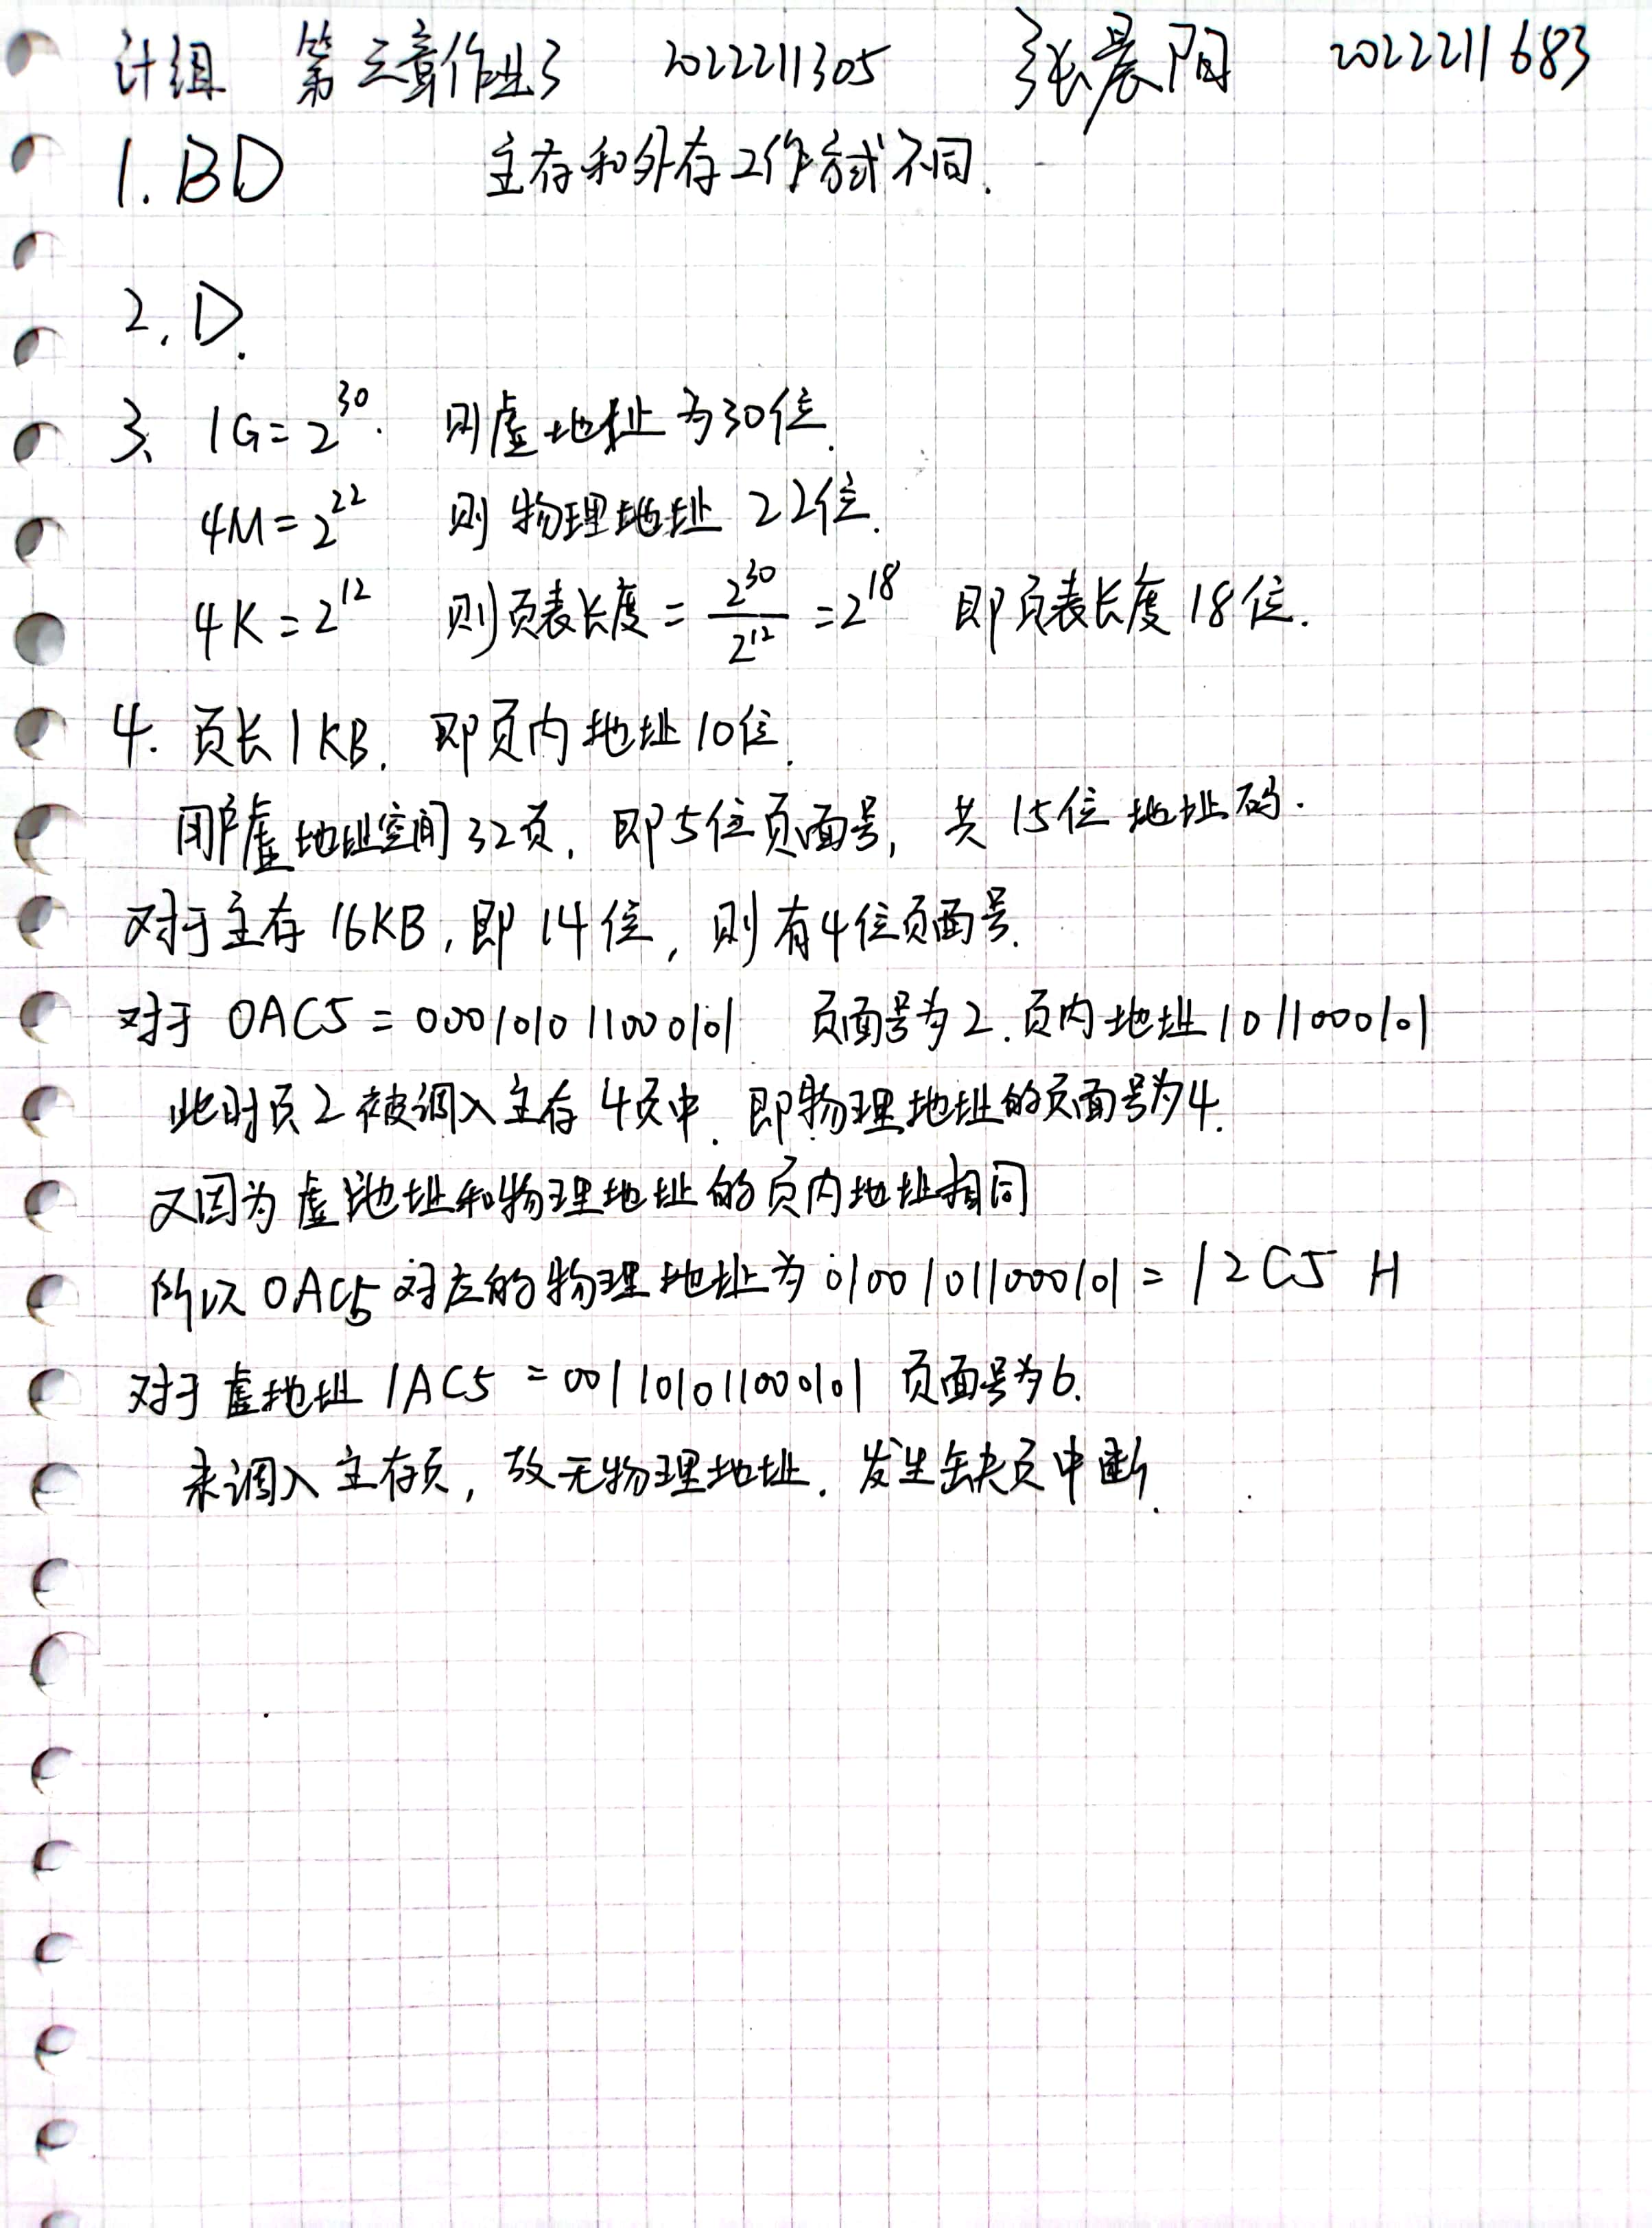 计组 第三章作业3 2022211305 张晨阳 2022211683
1. BD 主存和外存工作方式不同.
2. D.
3、 1G=2^30. 则虚地址为30位.
4M=2^22 则物理地址22位.
4K=2^12 则页表长度=2^30/2^12=2^18 即页表长度18位.
4. 页长1KB. 即页内地址10位.
用户虚地址空间32页, 即5位页面号, 共15位地址码.
对于主存16KB, 即14位, 则有4位页面号.
对于 0AC5=000101011000101 页面号为2. 页内地址1011000101
此时页2被调入主存4页中. 即物理地址的页面号为4.
又因为虚地址和物理地址的页内地址相同
所以0AC5对应的物理地址为01001011000101=12C5 H
对于虚地址1AC5=001101011000101 页面号为6.
未调入主存页, 故无物理地址. 发生缺页中断.